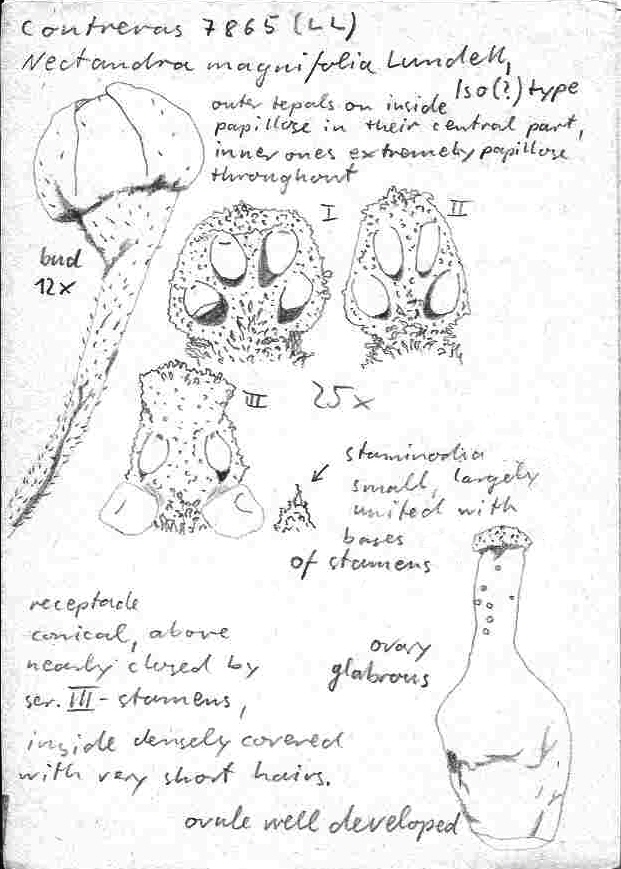 Contreras 7865 (LL)
Nectandra magnifolia Lundell,
Iso(?) type
outer tepals on inside
papillose in their central part,
inner ones extremely papillose
throughout
I
II
bud
12x
III
25x
staminodia
small, largely
united with
bases
of stamens
receptacle
conical, above
nearly closed by
ser. III-stamens,
inside densely covered
with very short hairs.
ovary
glabrous
ovule well developed